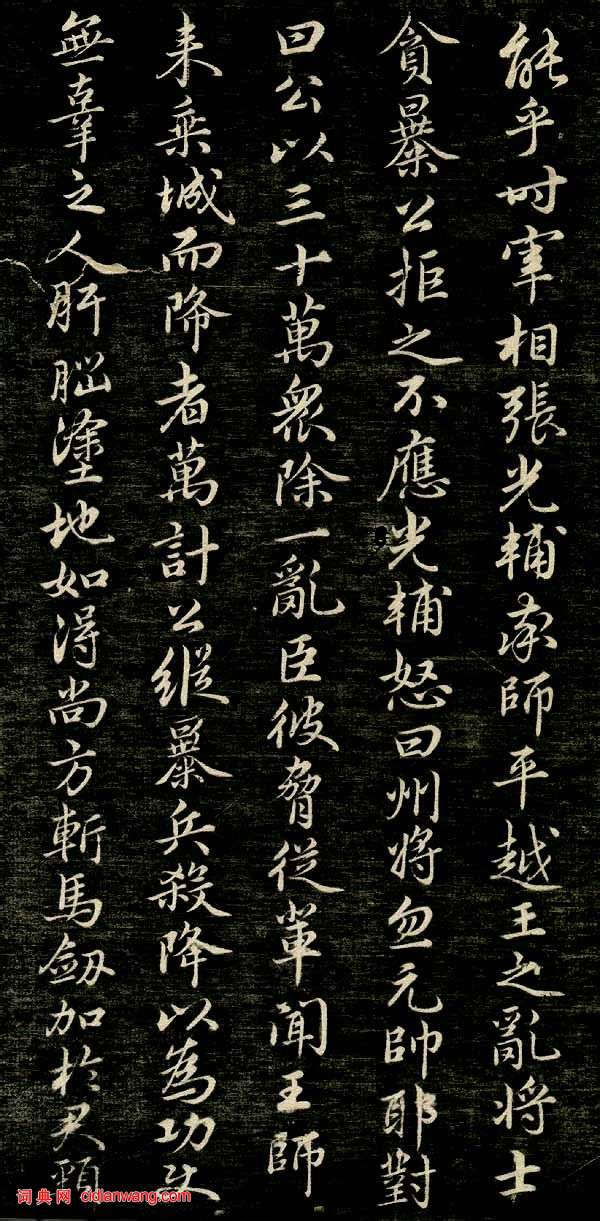 能乎时宰相張光輔帥師平越王之亂将士
貪暴公拒之不應光輔怒曰州将忽元帥耶對
曰公以三十萬衆除一亂臣彼脅從輩聞王師
来乗城而降者萬計公縱暴兵殺降以為功使
無辜之人肝脳塗地如得尚方斬馬劔加於尹頸
词典网 cidianwang.com